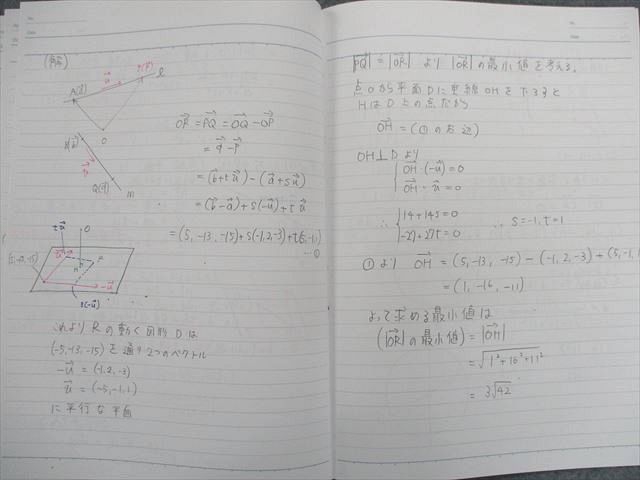 (解)
A(a)
P(p)
u
l
O
B(b)
v
Q(q)
m
OR = PQ = OQ - OP
= q - p
= (b + tv) - (a + su)
= (b - a) + s(-u) + tv
= (5, -13, -15) + s(-1, 2, -3) + t(5, -1, 1)
…①
O
H
R
-u
s(-u)
これより Rの動く図形 Dは
(-5, -13, -15)を通り2つのベクトル
-u = (-1, 2, -3)
u = (-5, -1, 1)
に平行な平面
|PQ| = |OR| より |OR|の最小値を考える。
点Oから平面Dに垂線OHを下ろすと
HはD上の点だから
OH = (①の右辺)
OH⊥Dより
OH・(-u) = 0
OH・u = 0
∴ 14+14s=0
-27+27t=0
∴ s=-1, t=1
①より OH = (5, -13, -15) - (-1, 2, -3) + (5, -1, 1)
= (1, -16, -11)
よって求める最小値は
(|OR|の最小値) = |OH|
= √1²+16²+11²
= 3√42